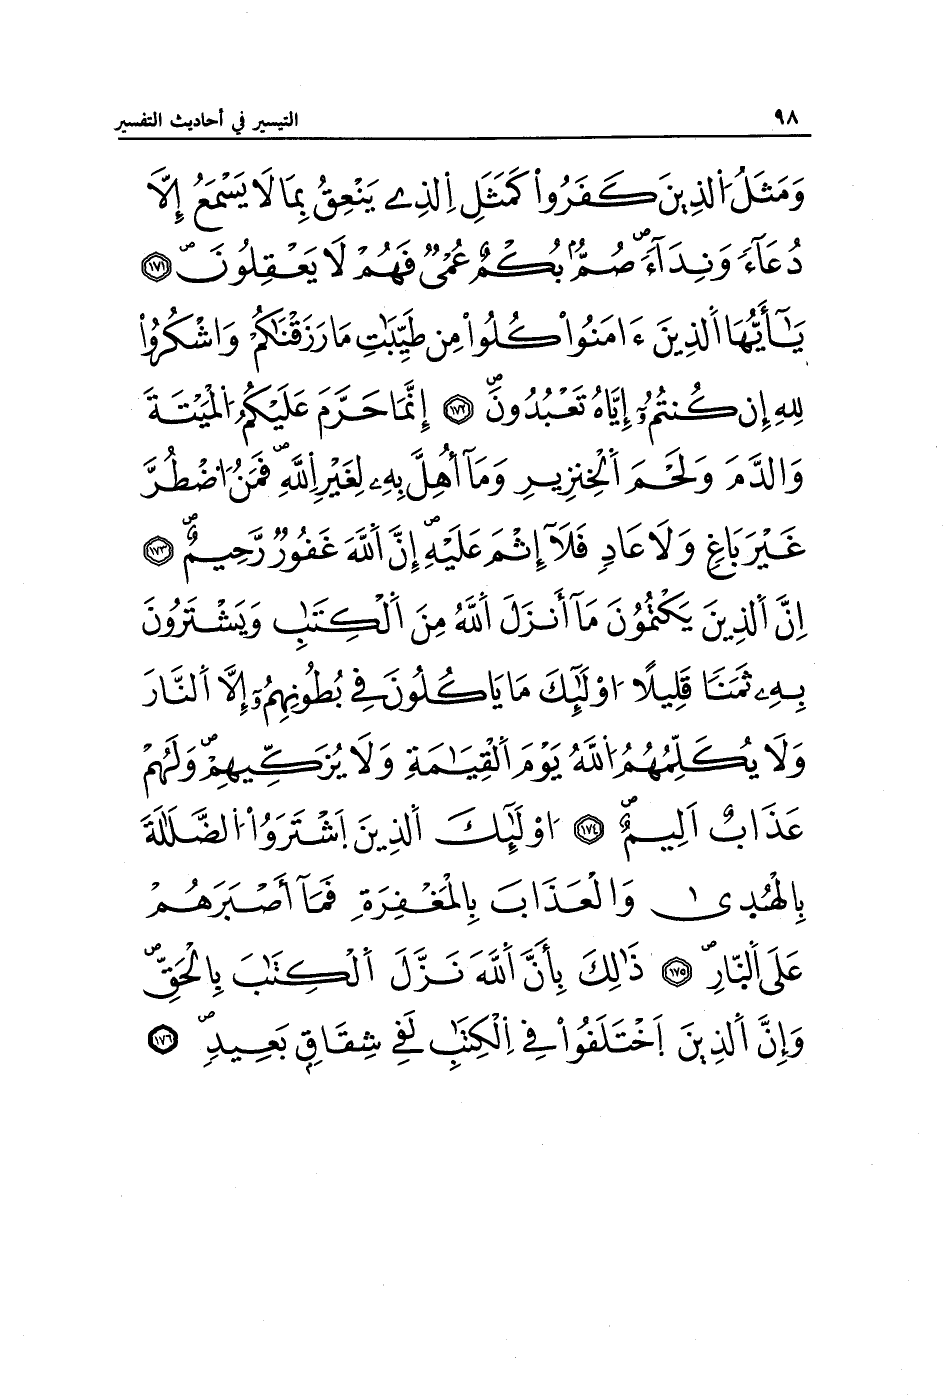 ٩٨ التيسير في أحاديث التفسير
وَمَثَلُ اَ۬لذِينَ كَفَرُواْ كَمَثَلِ اِ۬لذِے يَنْعِقُ بِمَا لَا يَسْمَعُ إِلَّا
دُعَآءً وَنِدَآءًۖ صُمُّۢ بُكْمٌ عُمْيٌ فَهُمْ لَا يَعْقِلُونَۖ ١٧١
يَٰٓأَيُّهَا اَ۬لذِينَ ءَامَنُواْ كُلُواْ مِن طَيِّبَٰتِ مَا رَزَقْنَٰكُمْ وَاشْكُرُواْ
لِلهِ إِن كُنتُمُۥٓ إِيَّاهُ تَعْبُدُونَۖ ١٧٢ إِنَّمَا حَرَّمَ عَلَيْكُمُ اُ۬لْمَيْتَةَ
وَالدَّمَ وَلَحْمَ اَ۬لْخِنزِيرِ وَمَآ أُهِلَّ بِهِۦ لِغَيْرِ اِ۬للَّهِۖ فَمَنُ اُ۟ضْطُرَّ
غَيْرَ بَاغٍ وَلَا عَادٍ فَلَآ إِثْمَ عَلَيْهِۖ إِنَّ اَ۬للَّهَ غَفُورٌ رَّحِيمٌۖ ١٧٣
اِنَّ اَ۬لذِينَ يَكْتُمُونَ مَآ أَنزَلَ اَ۬للَّهُ مِنَ اَ۬لْكِتَٰبِ وَيَشْتَرُونَ
بِهِۦ ثَمَناً قَلِيلًا اُوْلَٰٓئِكَ مَا يَاكُلُونَ فِي بُطُونِهِمُۥٓ إِلَّا اَ۬لنَّارَ
وَلَا يُكَلِّمُهُمُ اُ۬للَّهُ يَوْمَ اَ۬لْقِيَٰمَةِ وَلَا يُزَكِّيهِمْۖ وَلَهُمْ
عَذَابٌ اَلِيمٌۖ ١٧٤ اُوْلَٰٓئِكَ اَ۬لذِينَ اَ۪شْتَرَوُاْ اُ۬لضَّلَٰلَةَ
بِالْهُدىٰ وَالْعَذَابَ بِالْمَغْفِرَةِ فَمَآ أَصْبَرَهُمْ
عَلَى اَ۬لنّارِۖ ١٧٥ ذَٰلِكَ بِأَنَّ اَ۬للَّهَ نَزَّلَ اَ۬لْكِتَٰبَ بِالْحَقِّۖ
وَإِنَّ اَ۬لذِينَ اَ۪خْتَلَفُواْ فِي اِ۬لْكِتَٰبِ لَفِي شِقَاقٍ بَعِيدٍۖ ١٧٦